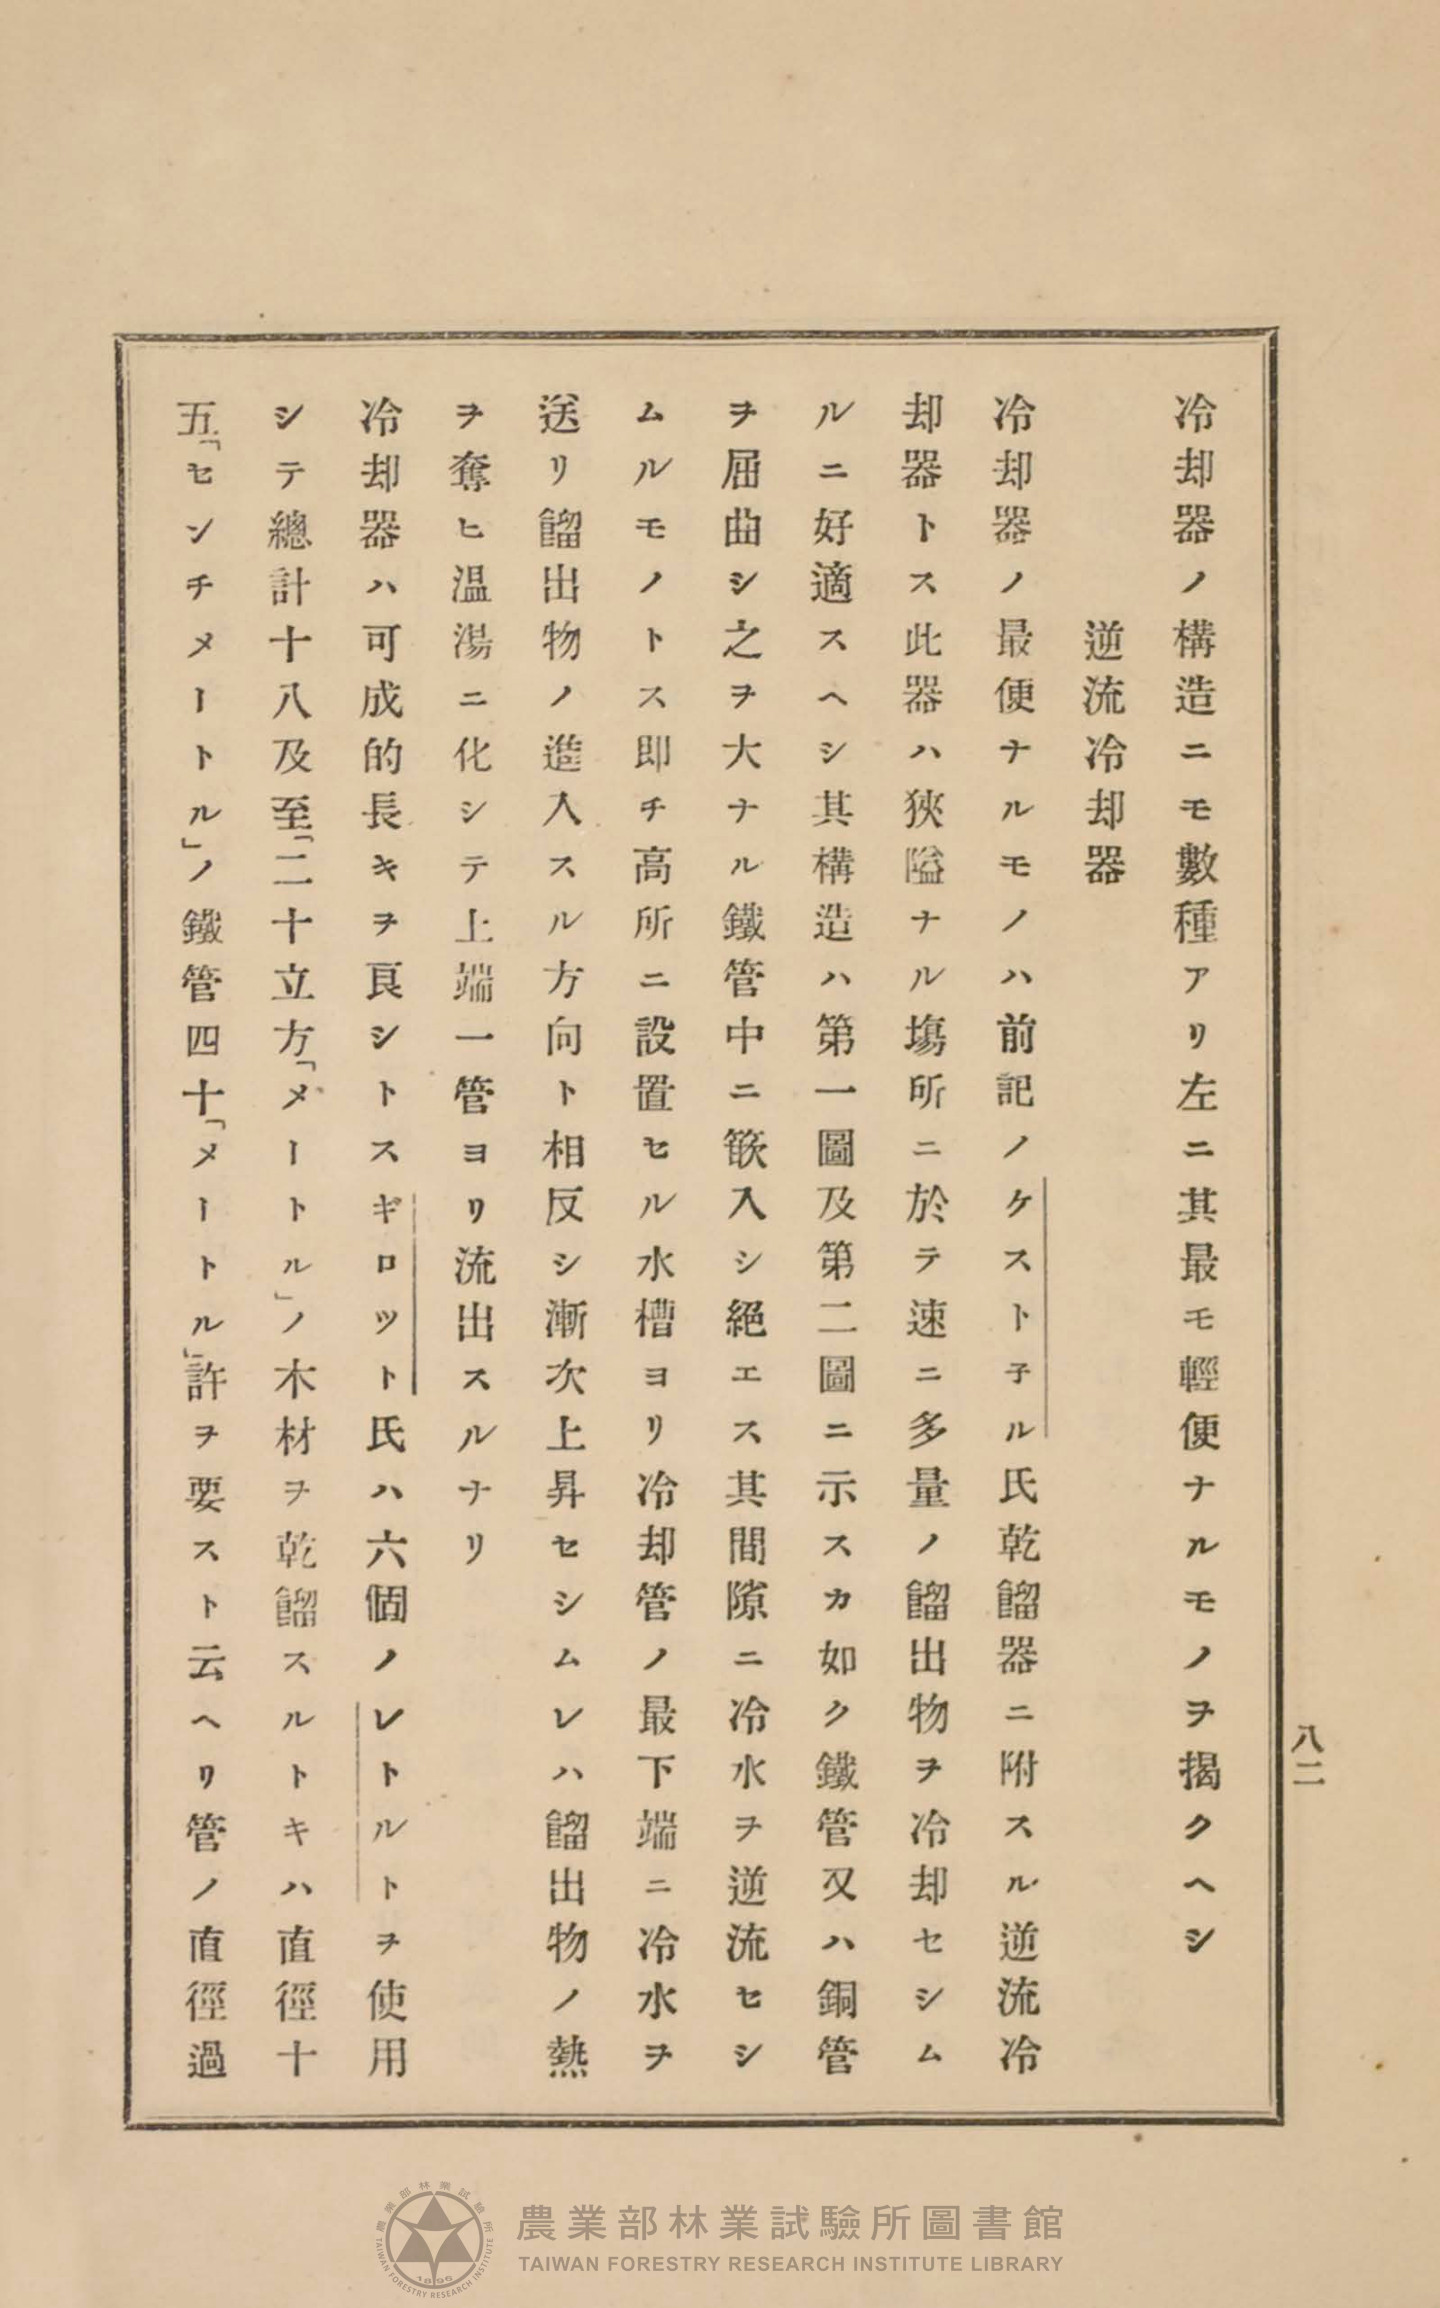 冷却器ノ構造ニモ數種アリ左ニ其最モ輕便ナルモノヲ揭クヘシ
逆流冷却器
冷却器ノ最便ナルモノハ前記ノケストネル氏乾餾器ニ附スル逆流冷
却器トス此器ハ狹隘ナル塲所ニ於テ速ニ多量ノ餾出物ヲ冷却セシム
ルニ好適スヘシ其構造ハ第一圖及第二圖ニ示スカ如ク鐵管又ハ銅管
ヲ屈曲シ之ヲ大ナル鐵管中ニ篏入シ絕エス其間隙ニ冷水ヲ逆流セシ
ムルモノトス即チ高所ニ設置セル水槽ヨリ冷却管ノ最下端ニ冷水ヲ
送リ餾出物ノ進入スル方向ト相反シ漸次上昇セシムレハ餾出物ノ熱
ヲ奪ヒ温湯ニ化シテ上端一管ヨリ流出スルナリ
冷却器ハ可成的長キヲ良シトスギロット氏ハ六個ノレトルトヲ使用
シテ總計十八及至「二十立方「メートル」ノ木材ヲ乾餾スルトキハ直徑十
五「センチメートル」ノ鐵管四十「メートル」許ヲ要スト云ヘリ管ノ直徑過
八二
農業部林業試驗所圖書館
TAIWAN FORESTRY RESEARCH INSTITUTE LIBRARY
農業部林業試驗所
TAIWAN FORESTRY RESEARCH INSTITUTE
1896